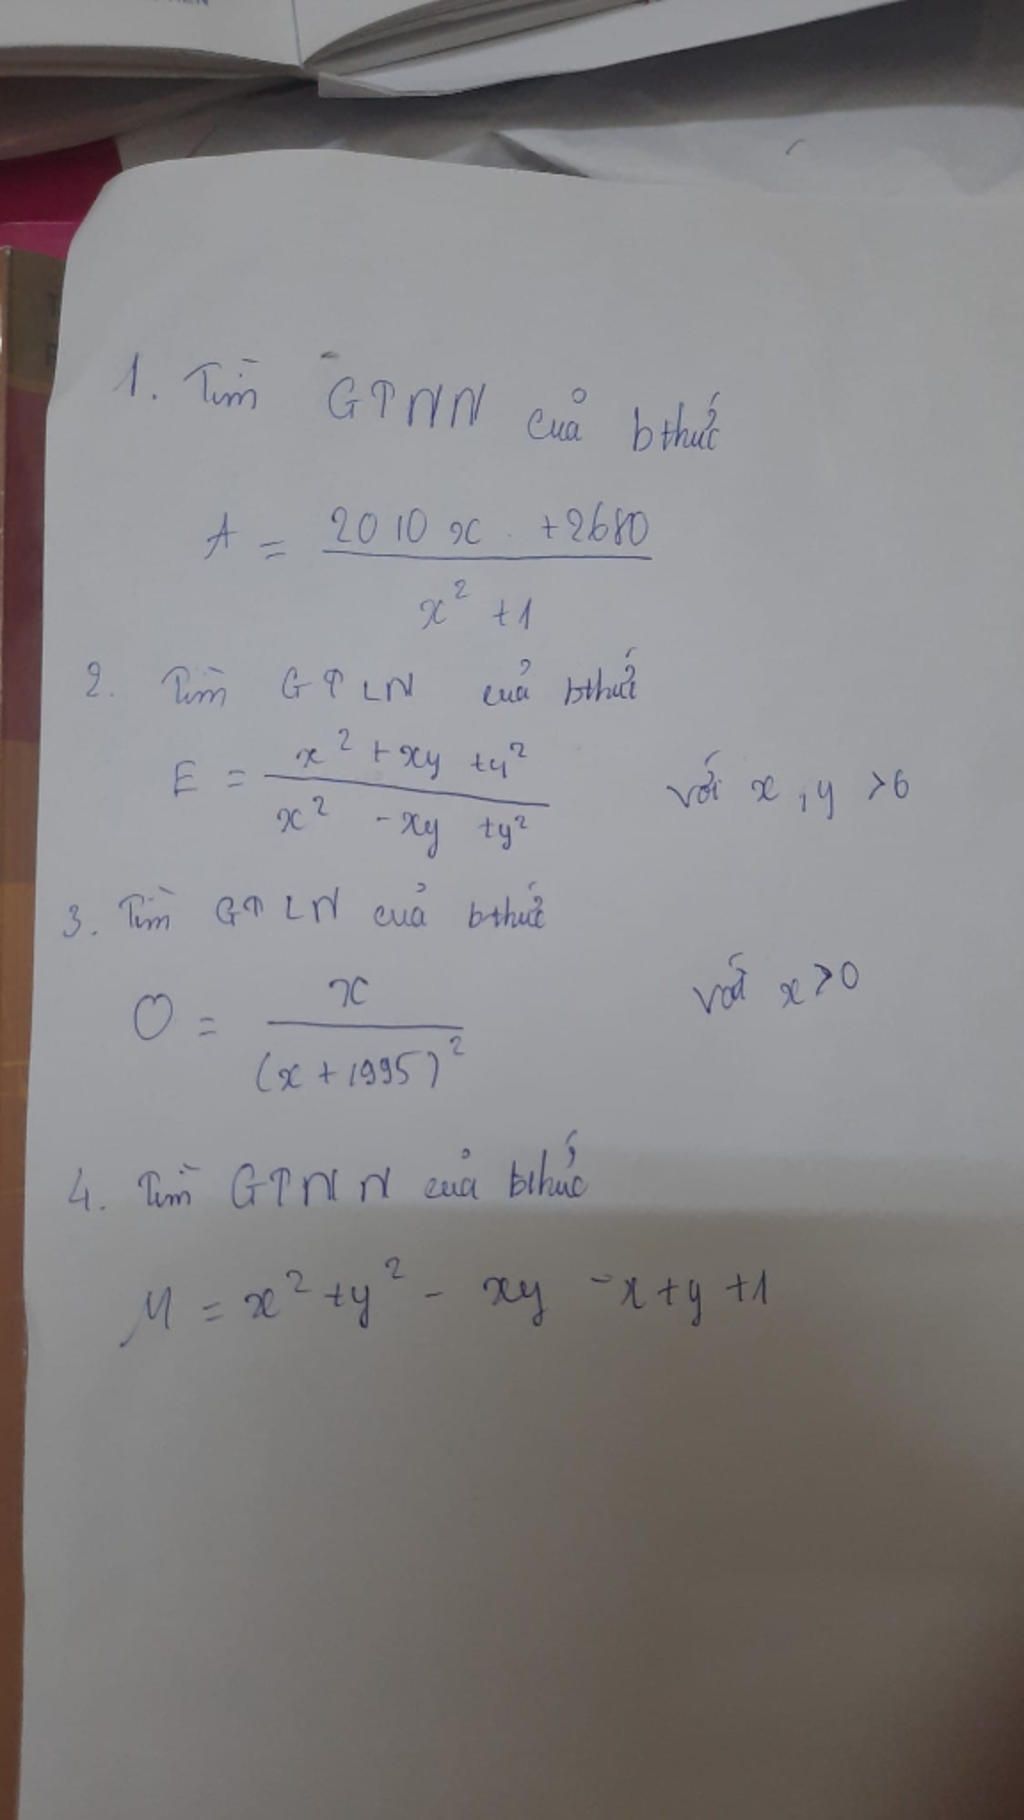 1. Tìm GTNN của bthức
A = \frac{2010x + 2680}{x^2 + 1}
2. Tìm GTLN của bthức
E = \frac{x^2 + xy + y^2}{x^2 - xy + y^2} với x, y > 0
3. Tìm GTLN của bthức
O = \frac{x}{(x + 1995)^2} với x > 0
4. Tìm GTNN của bthức
M = x^2 + y^2 - xy - x + y + 1